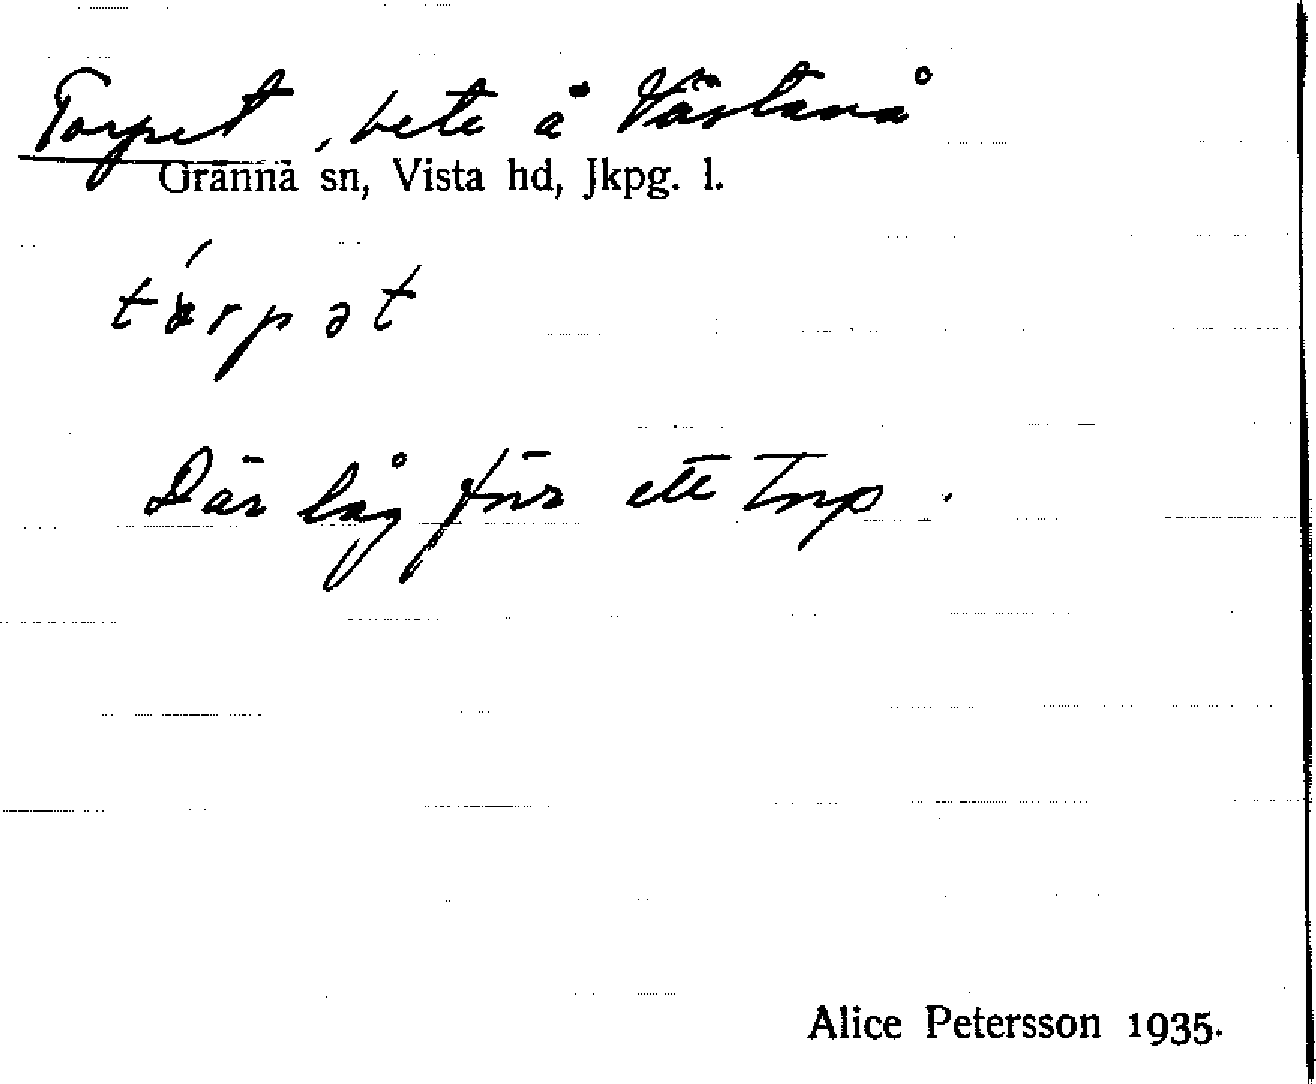 Torpet, bete å Västanå
Gränna sn, Vista hd, Jkpg. l.
tårpət
Där låg förr ett torp.
Alice Petersson 1935.